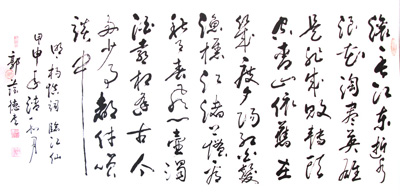 滚滚長江東逝水
浪花淘盡英雄
是非成敗轉頭
空青山依舊在
幾度夕陽紅白髮
漁樵江渚上慣看
秋月春風一壺濁
酒喜相逢古今
多少事都付笑
談中
明楊慎詞臨江仙
甲申年 月
郭 德